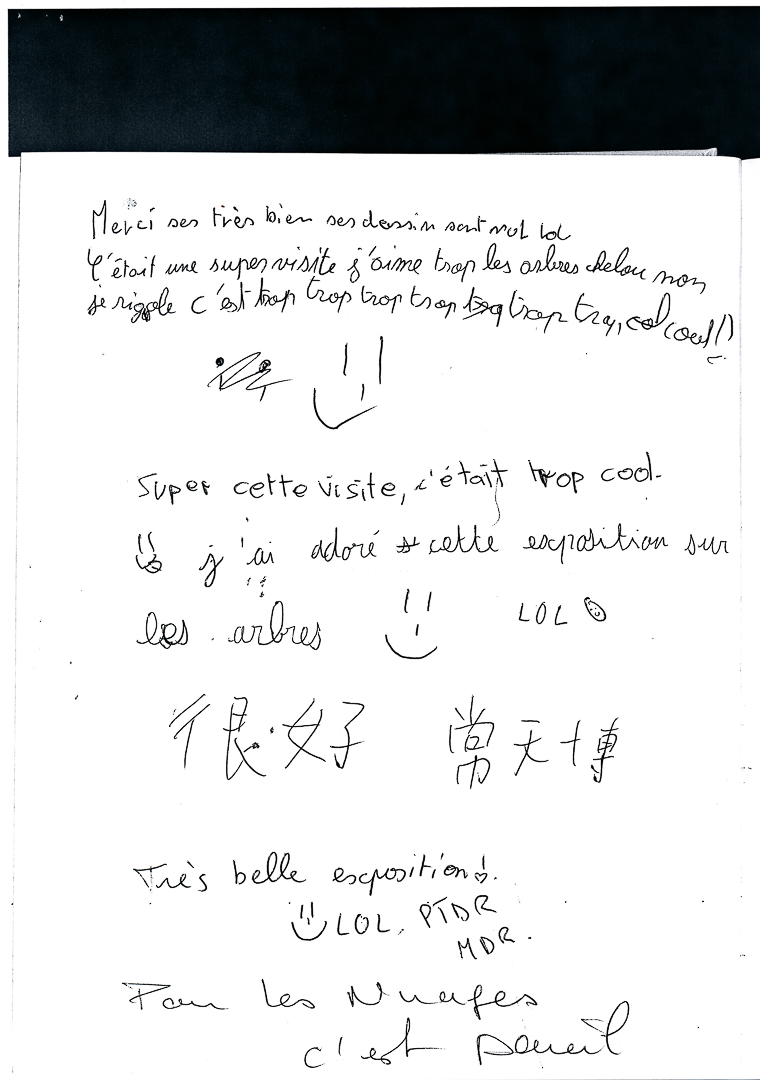 Merci ses très bien ses dessin sont nul lol
C'était une super visite j'aime trop les arbres chelou non
je rigole c'est trop trop trop trop trop trop cool!!
Super cette visite, c'était trop cool.
j'ai adoré cette exposition sur
les arbres LOL
很好 常天博
Très belle exposition!
LOL, PTDR
MDR.
Pour les Nuages
c'est pareil